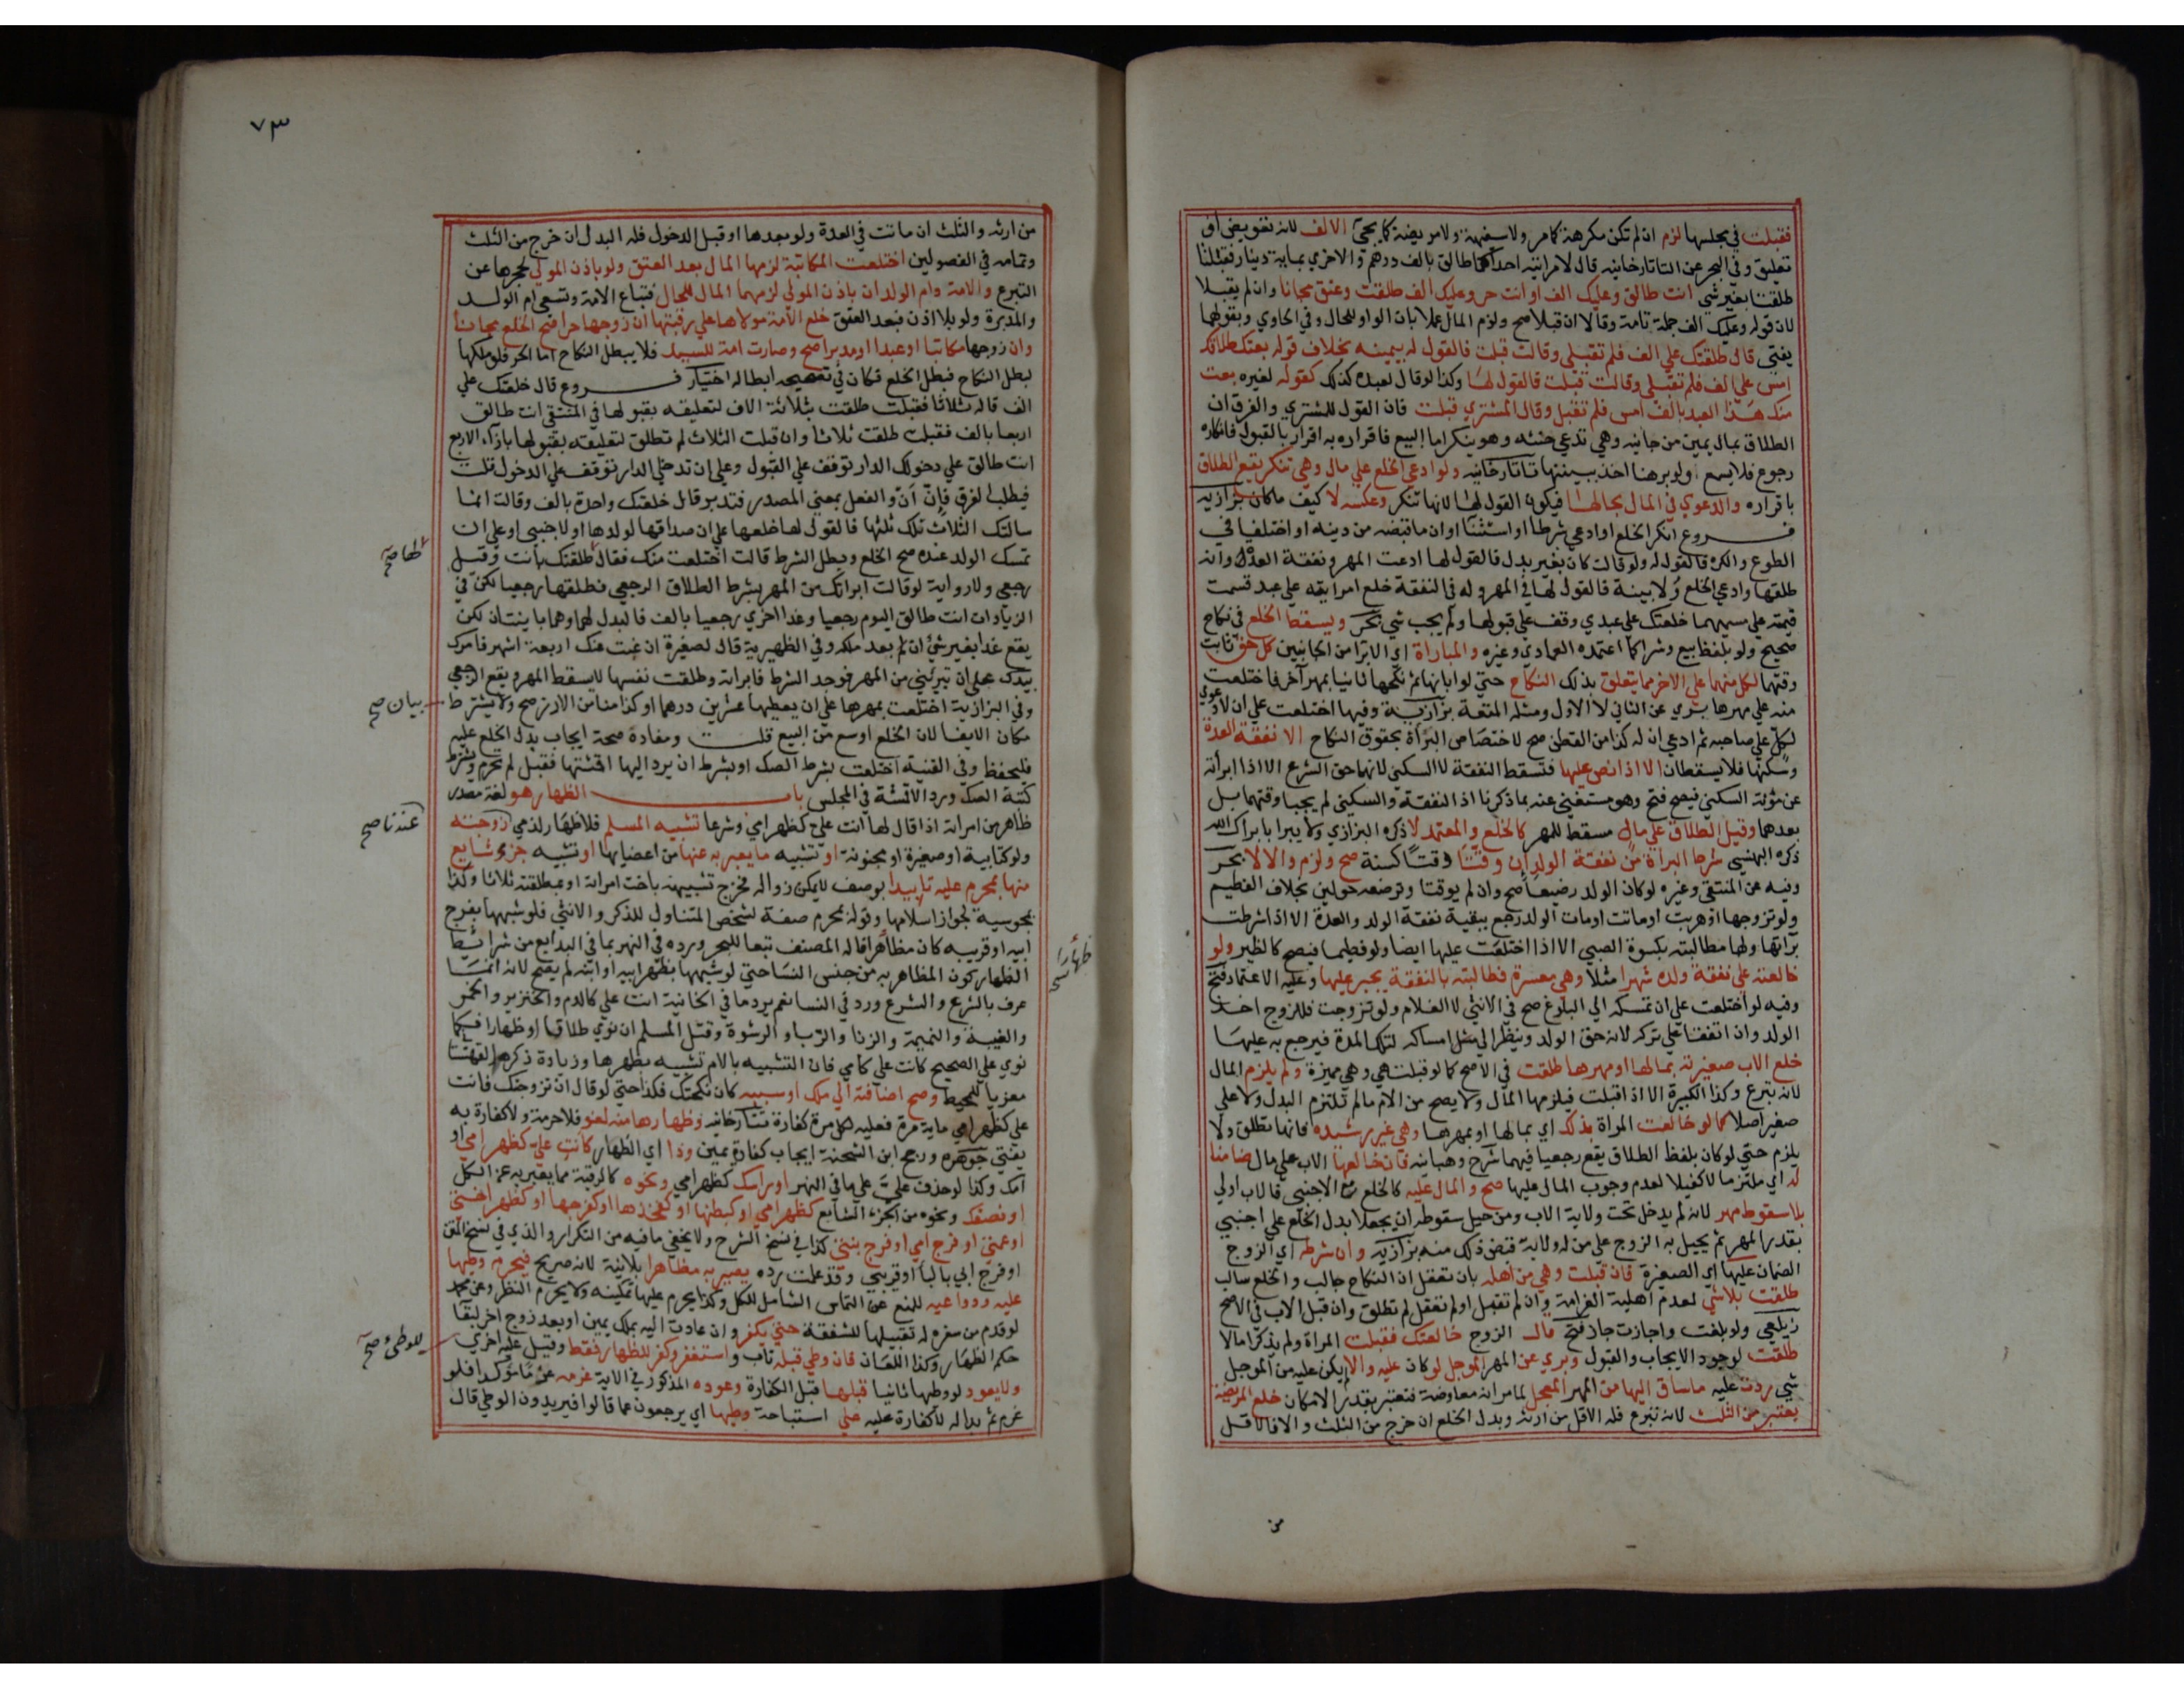 فقبلت في مجلسها لزم ان لم تكن مكرهة كما مر ولا سفيهة ولا مريضة كما يجيء الالف لانه تفويض او
تعليق وفي البحر عن التاتارخانيه قال لامراتيه احداكما طالق بالف درهم والاخري بماية دينار فقبلتا
طلقتا بغير شي انت طالق وعليك الف او انت حر وعليك الف طلقت وعتق مجانا وان لم يقبلا
لان قوله وعليك الف جملة تامة وقالا ان قبلا صح ولزم المال عملا بان الواو للحال وفي الحاوي وبقولهما
يفتي قال طلقتك علي الف فلم تقبلي وقالت قبلت فالقول له بيمينه بخلاف قوله بعتك طلاقك
امس علي الف فلم تقبلي وقالت قبلت فالقول لها وكذا لو قال لعبده كذلك كقوله لغيره بعت
منك هذا العبد بالف امس فلم تقبل وقال المشتري قبلت فان القول للمشتري والفرق ان
الطلاق بمال يمين من جانبه وهي تدعي حنثه وهو ينكر اما البيع فاقراره به اقرار بالقبول فانكاره
رجوع فلا يسمع ولو برهنا اخذ ببينتها تاتارخانيه ولو ادعي الخلع علي مال وهي تنكر يقع الطلاق
باقراره والدعوي في المال بحالها فيكون القول لها لانها تنكر وعكسه لا كيف ما كان بزازيه
فروع انكر الخلع او ادعي شرطا او استثنا او ان ما قبضه من دينه او اختلفا في
الطوع والكره فالقول له ولو قالت كان بغير بدل فالقول لها ادعت المهر ونفقة العدة وانه
طلقها وادعي الخلع ولا بينة فالقول لها في المهر وله في النفقة خلع امراتيه علي عبد قسمت
قيمته علي مسميهما خلعتك علي عبدي وقف علي قبولها ولم يجب شي بحر ويسقط الخلع في نكاح
صحيح ولو بلفظ بيع وشرا كما اعتمده العمادي وغيره والمباراة اي الابرا من الجانبين كل حق ثابت
وقتها لكل منهما علي الاخر مما يتعلق بذلك النكاح حتي لو ابانها ثم نكحها ثانيا بمهر آخر فاختلعت
منه علي مهرها بري عن الثاني لا الاول ومثله المتعة بزازية وفيها اختلعت علي ان لا دعوي
لكل علي صاحبه ثم ادعي ان له كذا من القطن صح لاختصاص البرأة بحقوق النكاح الا نفقة العدة
وسكنها فلا يسقطان الا اذا نص عليها فتسقط النفقة لا السكني لانها حق الشرع الا اذا ابرأته
عن مؤنة السكني فيصح فتح وهو مستغني عنه بما ذكرنا اذ النفقة والسكني لم يجبا وقتهما بل
بعدهما وقيل الطلاق علي مال مسقط للمهر كالخلع والمعتمد لا ذكره البزازي ولا يبرا بابراك الله
ذكره البهنسي شرط البرأة من نفقة الولد ان وقتا وقتا كسنة صح ولزم والا لا بحر
وفيه عن المنتقي وغيره لو كان الولد رضيعا صح وان لم يوقتا وترضعه حولين بخلاف الفطيم
ولو تزوجها او هربت او ماتت او مات الولد رجع ببقية نفقة الولد والعدة الا اذا شرطت
برأتها ولها مطالبته بكسوة الصبي الا اذا اختلعت عليها ايضا ولو فطيما فيصح كالظير ولو
خالعته علي نفقة ولده شهرا مثلا وهي معسرة فطالبته بالنفقة يجبر عليها وعليه الاعتماد فتح
وفيه لو اختلعت علي ان تمسكه الي البلوغ صح في الانثي لا الغلام ولو تزوجت فللزوج اخذ
الولد وان اتفقا علي تركه لانه حق الولد وينظر الي مثل امساكه لتلك المدة فيرجع به عليها
خلع الاب صغيرته بمالها او مهرها طلقت في الاصح كما لو قبلت هي وهي مميزة ولم يلزم المال
لانه تبرع وكذا الكبيرة الا اذا قبلت فيلزمها المال ولا يصح من الام ما لم تلتزم البدل ولا علي
صغير اصلا كما لو خالعت المراة بذلك اي بمالها او بمهرها وهي غير رشيده فانها تطلق ولا
يلزم حتي لو كان بلفظ الطلاق يقع رجعيا فيهما شرح وهبانيه فان خالعها الاب علي مال ضامنا
له اي ملتزما لا كفيلا لعدم وجوب المال عليها صح والمال عليه كالخلع مع الاجنبي فالاب اولي
بلا سقوط مهر لانه لم يدخل تحت ولاية الاب ومن حيل سقوطه ان يجعلا بدل الخلع علي اجنبي
بقدر المهر ثم يحيل به الزوج علي من له ولاية قبض ذلك منه بزازيه وان شرطه اي الزوج
الضمان عليها اي الصغيرة فان قبلت وهي من اهله بان تعقل ان النكاح جالب والخلع سالب
طلقت بلا شي لعدم اهلية الغرامة وان لم تقبل او لم تعقل لم تطلق وان قبل الاب في الاصح
زيلعي ولو بلغت واجازت جاز فتح قال الزوج خالعتك فقبلت المراة ولم يذكرا مالا
طلقت لوجود الايجاب والقبول وبري عن المهر الموجل لو كان عليه والا يكن عليه من الموجل
شي ردت عليه ما ساق اليها من المهر المعجل لما مر انه معاوضة فتعتبر بقدر الامكان خلع المريضة
يعتبر من الثلث لانه تبرع فله الاقل من ارثه وبدل الخلع ان خرج من الثلث والا فالاقل
من
٧٣
من ارثه والثلث ان ماتت في العدة ولو بعدها او قبل الدخول فله البدل ان خرج من الثلث
وتمامه في الفصولين اختلعت المكاتبة لزمها المال بعد العتق ولو باذن المولي لحجرها عن
التبرع والامة وام الولد ان باذن المولي لزمهما المال للحال فتباع الامة وتسعي ام الولد
والمدبرة ولو بلا اذن فبعد العتق خلع الامة مولاها علي رقبتها ان زوجها حرا صح الخلع مجانا
وان زوجها مكاتبا او عبدا او مدبرا صح وصارت امة للسيد فلا يبطل النكاح اما الحر فلو ملكها
لبطل النكاح فبطل الخلع فكان في تصحيحه ابطاله اختيار فروع قال خلعتك علي
الف قاله ثلاثا فقبلت طلقت بثلاثة الاف لتعليقه بقبولها في المنتقي انت طالق
اربعا بالف فقبلت طلقت ثلاثا وان قبلت الثلاث لم تطلق لتعليقه بقبولها بازآء الاربع
انت طالق علي دخولك الدار توقف علي القبول وعلي ان تدخلي الدار توقف علي الدخول قلت
فيطلب الفرق فإن أن والفعل بمعني المصدر فتدبر قال خلعتك واحدة بالف وقالت انما
سالتك الثلاث فلك ثلثها فالقول لها خلعها علي ان صداقها لولدها او لاجنبي او علي ان
تمسك الولد عنده صح الخلع وبطل الشرط قالت اختلعت منك فقال طلقتك بانت وقيل
لها صح
رجعي ولا رواية لو قالت ابراتك من المهر بشرط الطلاق الرجعي فطلقها رجعيا لكن في
الزيادات انت طالق اليوم رجعيا وغدا اخري رجعيا بالف فالبدل لهما وهما باينتان لكن
يقع غدا بغير شئ ان لم يعد ملكه وفي الظهيرية قال لصغيرة ان غبت عنك اربعة اشهر فامرك
بيدك علي ان تبرئيني من المهر فوجد الشرط فابراته وطلقت نفسها لا يسقط المهر ويقع الرجعي
وفي البزازية اختلعت بمهرها علي ان يعطيها عشرين درهما او كذا منا من الارز صح ولا يشترط
بيان صح
مكان الايفا لان الخلع اوسع من البيع قلت ومفاده صحة ايجاب بدل الخلع عليه
فليحفظ وفي القنية اختلعت بشرط الصك او بشرط ان يرد اليها اقمشتها فقبل لم تحرم ويشترط
كتبة الصك ورد الاقمشة في المجلس باب الظهار هو لغة مصدر
ظاهر من امراته اذا قال لها انت علي كظهر امي وشرعا تشبيه المسلم فلا ظهار لذمي زوجته
عندنا صح
ولو كتابية او صغيرة او مجنونة او تشبيه ما يعبر به عنها من اعضايها او تشبيه جزء شايع
منها بمحرم عليه تابيدا بوصف لا يمكن زواله فخرج تشبيهه باخت امراته او بمطلقته ثلاثا وكذا
بمجوسية لجواز اسلامها وقوله بمحرم صفة لشخص المتناول للذكر والانثي فلو شبهها بفرج
ابيه او قريبه كان مظاهرا قاله المصنف تبعا للبحر ورده في النهر بما في البدايع من شرايط
ظهارا صح
الظهار كون المظاهر به من جنس النسا حتي لو شبهها بظهر ابيه او ابنه لم يصح لانه انما
عرف بالشرع والشرع ورد في النسا نعم يرد ما في الخانية انت علي كالدم والخنزير والخمر
والغيبة والنميمة والزنا والربا والرشوة وقتل المسلم ان نوي طلاقا او ظهارا فكما
نوي علي الصحيح كانت علي كامي فان التشبيه بالام تشبيه بظهرها وزيادة ذكره القهستا
معزيا للمحيط وصح اضافته الي ملك او سببه كان نكحتك فكذا حتي لو قال ان تزوجتك فانت
علي كظهر امي ماية مرة فعليه لكل مرة كفارة تتارخانيه وظهارها منه لغو فلا حرمة ولا كفارة به
يفتي جوهره ورجح ابن الشحنة ايجاب كفارة يمين وذا اي الظهار كانت علي كظهر امي او
امك وكذا لو حذف علي كما في النهر او راسك كظهر امي ونحوه كالرقبة مما يعبر به عن الكل
او نصفك ونحوه من الجزء الشايع كظهر امي او كبطنها او كفخذها او كفرجها او كظهر اختي
او عمتي او فرج امي او فرج بنتي كذا في نسخ الشرح ولا يخفي ما فيه من التكرار والذي في نسخ المتن
او فرج ابي بالبا او قريبي وقد علمت رده يصير به مظاهرا بلا نية لانه صريح فيحرم وطيها
عليه ودواعيه للمنع عن التماس الشامل للكل وكذا يحرم عليها تمكينه ولا يحرم النظر وعن محمد
لو قدم من سفره له تقبيلها للشفقة حتي يكفر وان عادت اليه بملك يمين او بعد زوج اخر لبقا
حكم الظهار وكذا اللعان فان وطي قبله تاب واستغفر وكفر للظهار فقط وقيل عليه اخري
للوطي صح
ولا يعود لوطيها ثانيا قبلها قبل الكفارة وعوده المذكور في الاية عزمه عزما موكدا فلو
عزم ثم بدا له لا كفارة عليه علي استباحة وطيها اي يرجعون عما قالوا فيريدون الوطي قال